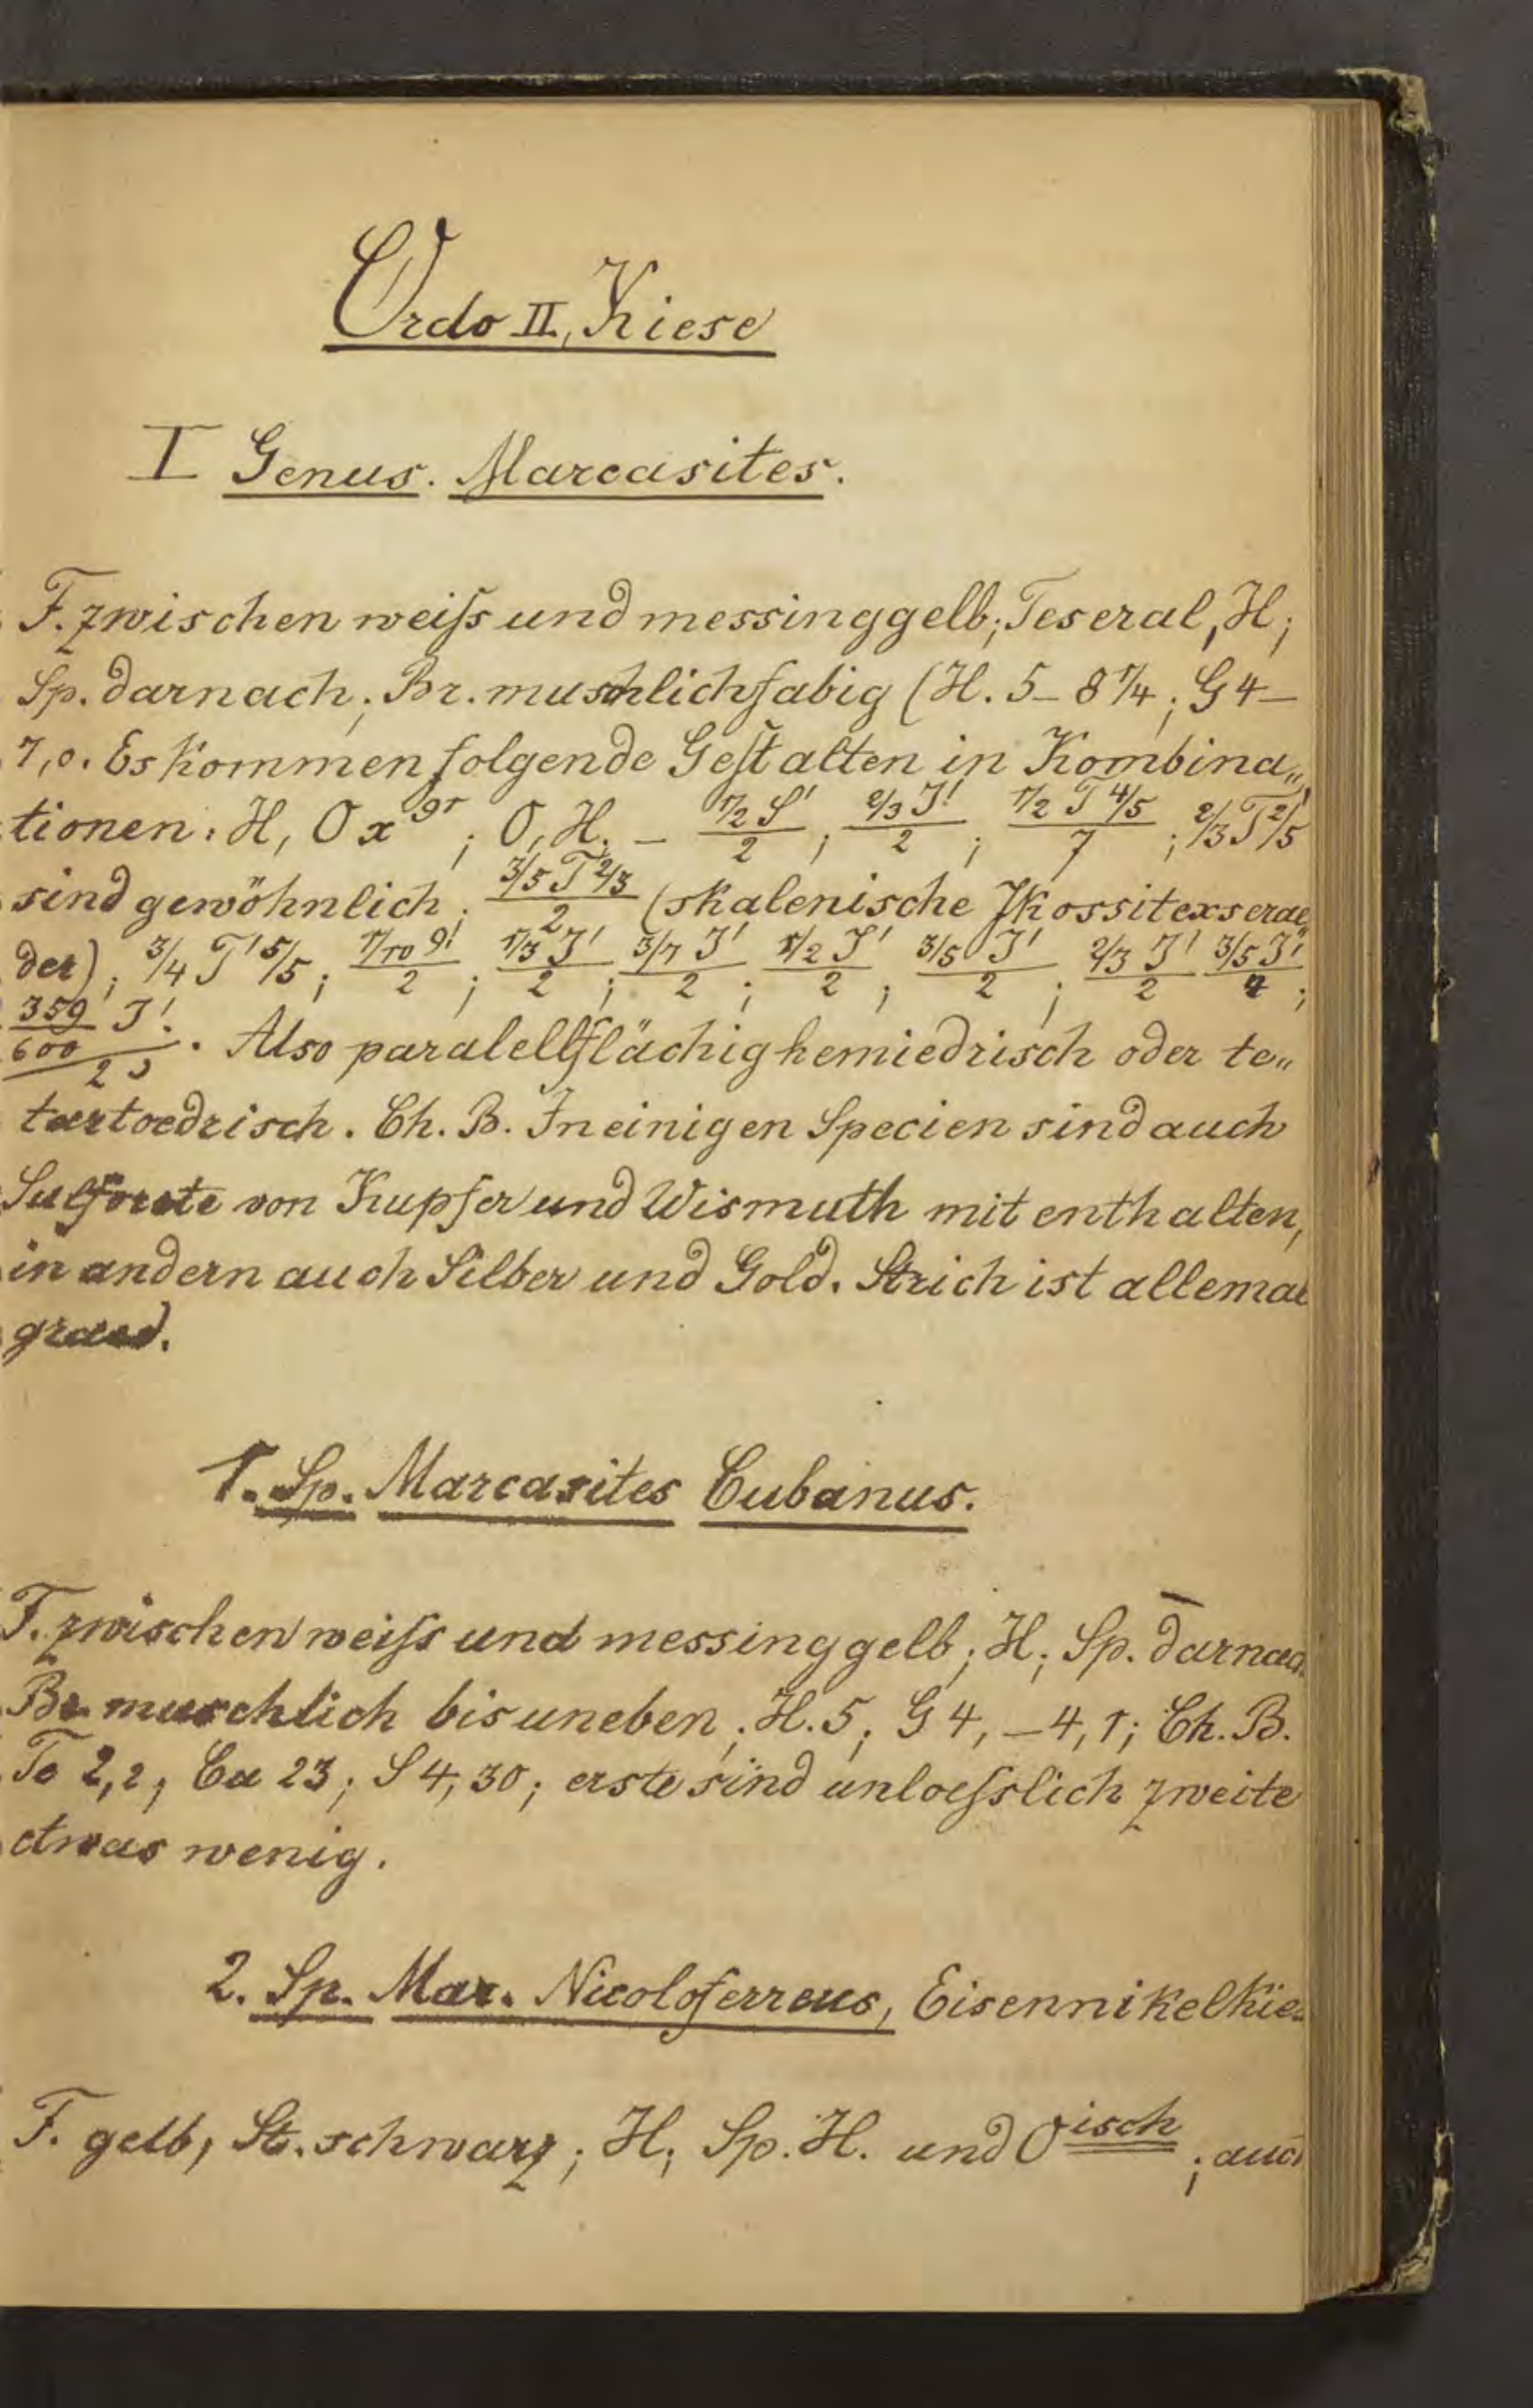 Ordo II, Kiese
I Genus. Marcasites.
F. zwischen weiſs und messinggelb; Teseral, H;
Sp. darnach; Br. muschlichfabig (H. 5–8 1/4; G 4–
7,0. Es kommen folgende Geſtalten in Kombina„
tionen: H, O x gr; O, H. – 1/2 S'/2; 2/3 J'/2; 1/2 T 4/5/7; 2/3 T 2/5
sind gewöhnlich; 3/5 T 2/3/2 (skalenische
der); 3/4 T' 5/5; 1/10 9!/2; 1/3 J'/2; 3/7 J'/2; 1/2 J'/2; 3/5 J'/2; 2/3 J'/2 3/5 J'/4;
359/600 J'/2. Also paralellflächighemiedrisch oder te„
tartoedrisch. Ch. B. In einigen Specien sind auch
von Kupfer und Wismuth mit enthalten,
in andern auch Silber und Gold. Strich ist allemal
1. Sp. Marcasites Cubanus.
F. zwischen weiſs und messinggelb; H; Sp. darnach
Br. muschlich bis uneben; H. 5; G 4,–4,1; Ch. B.
2,2; Cu 23; S 4,30; erste sind unloeſslich zweite
etwas wenig.
2. Sp. Mar. Nicoloferreus, Eisennikelkie
F. gelb, St. schwarz; H; Sp. H. und O isch; auch